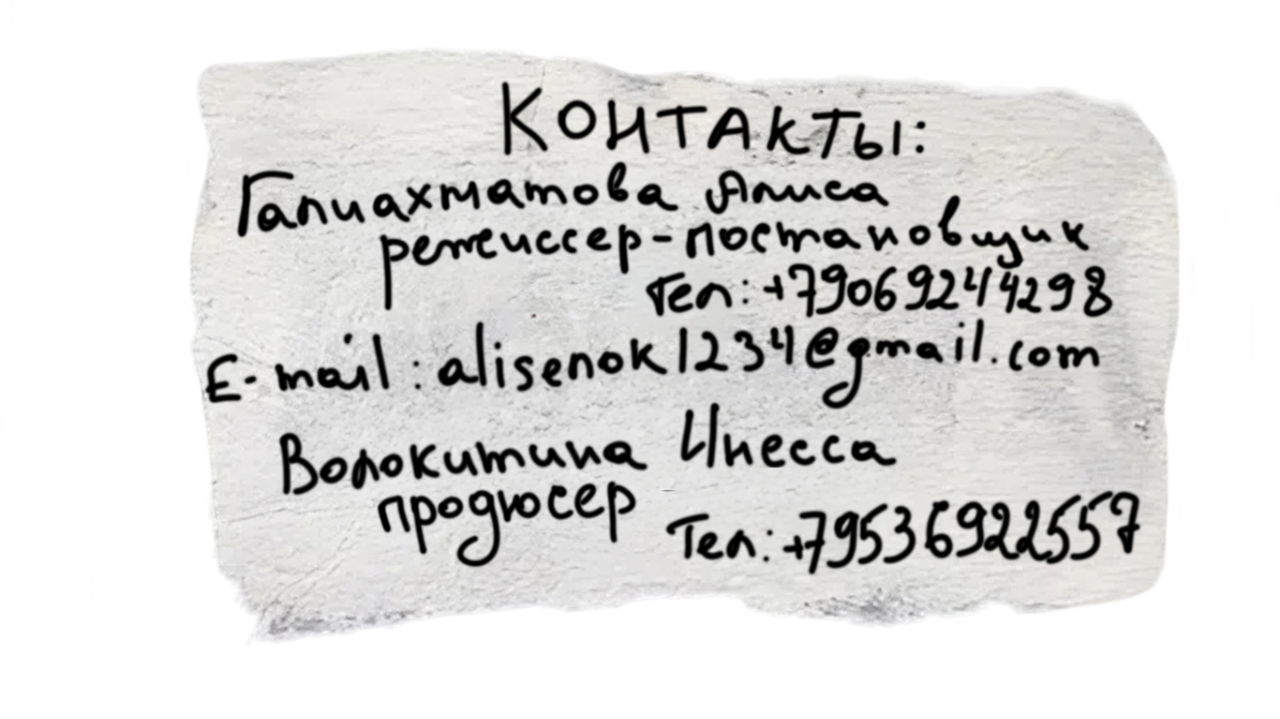 Контакты:
Галиахматова Алиса
режиссер-постановщик
Тел: +79069244298
E-mail: alisenok1234@gmail.com
Волокитина Инесса
продюсер
Тел: +79536922557